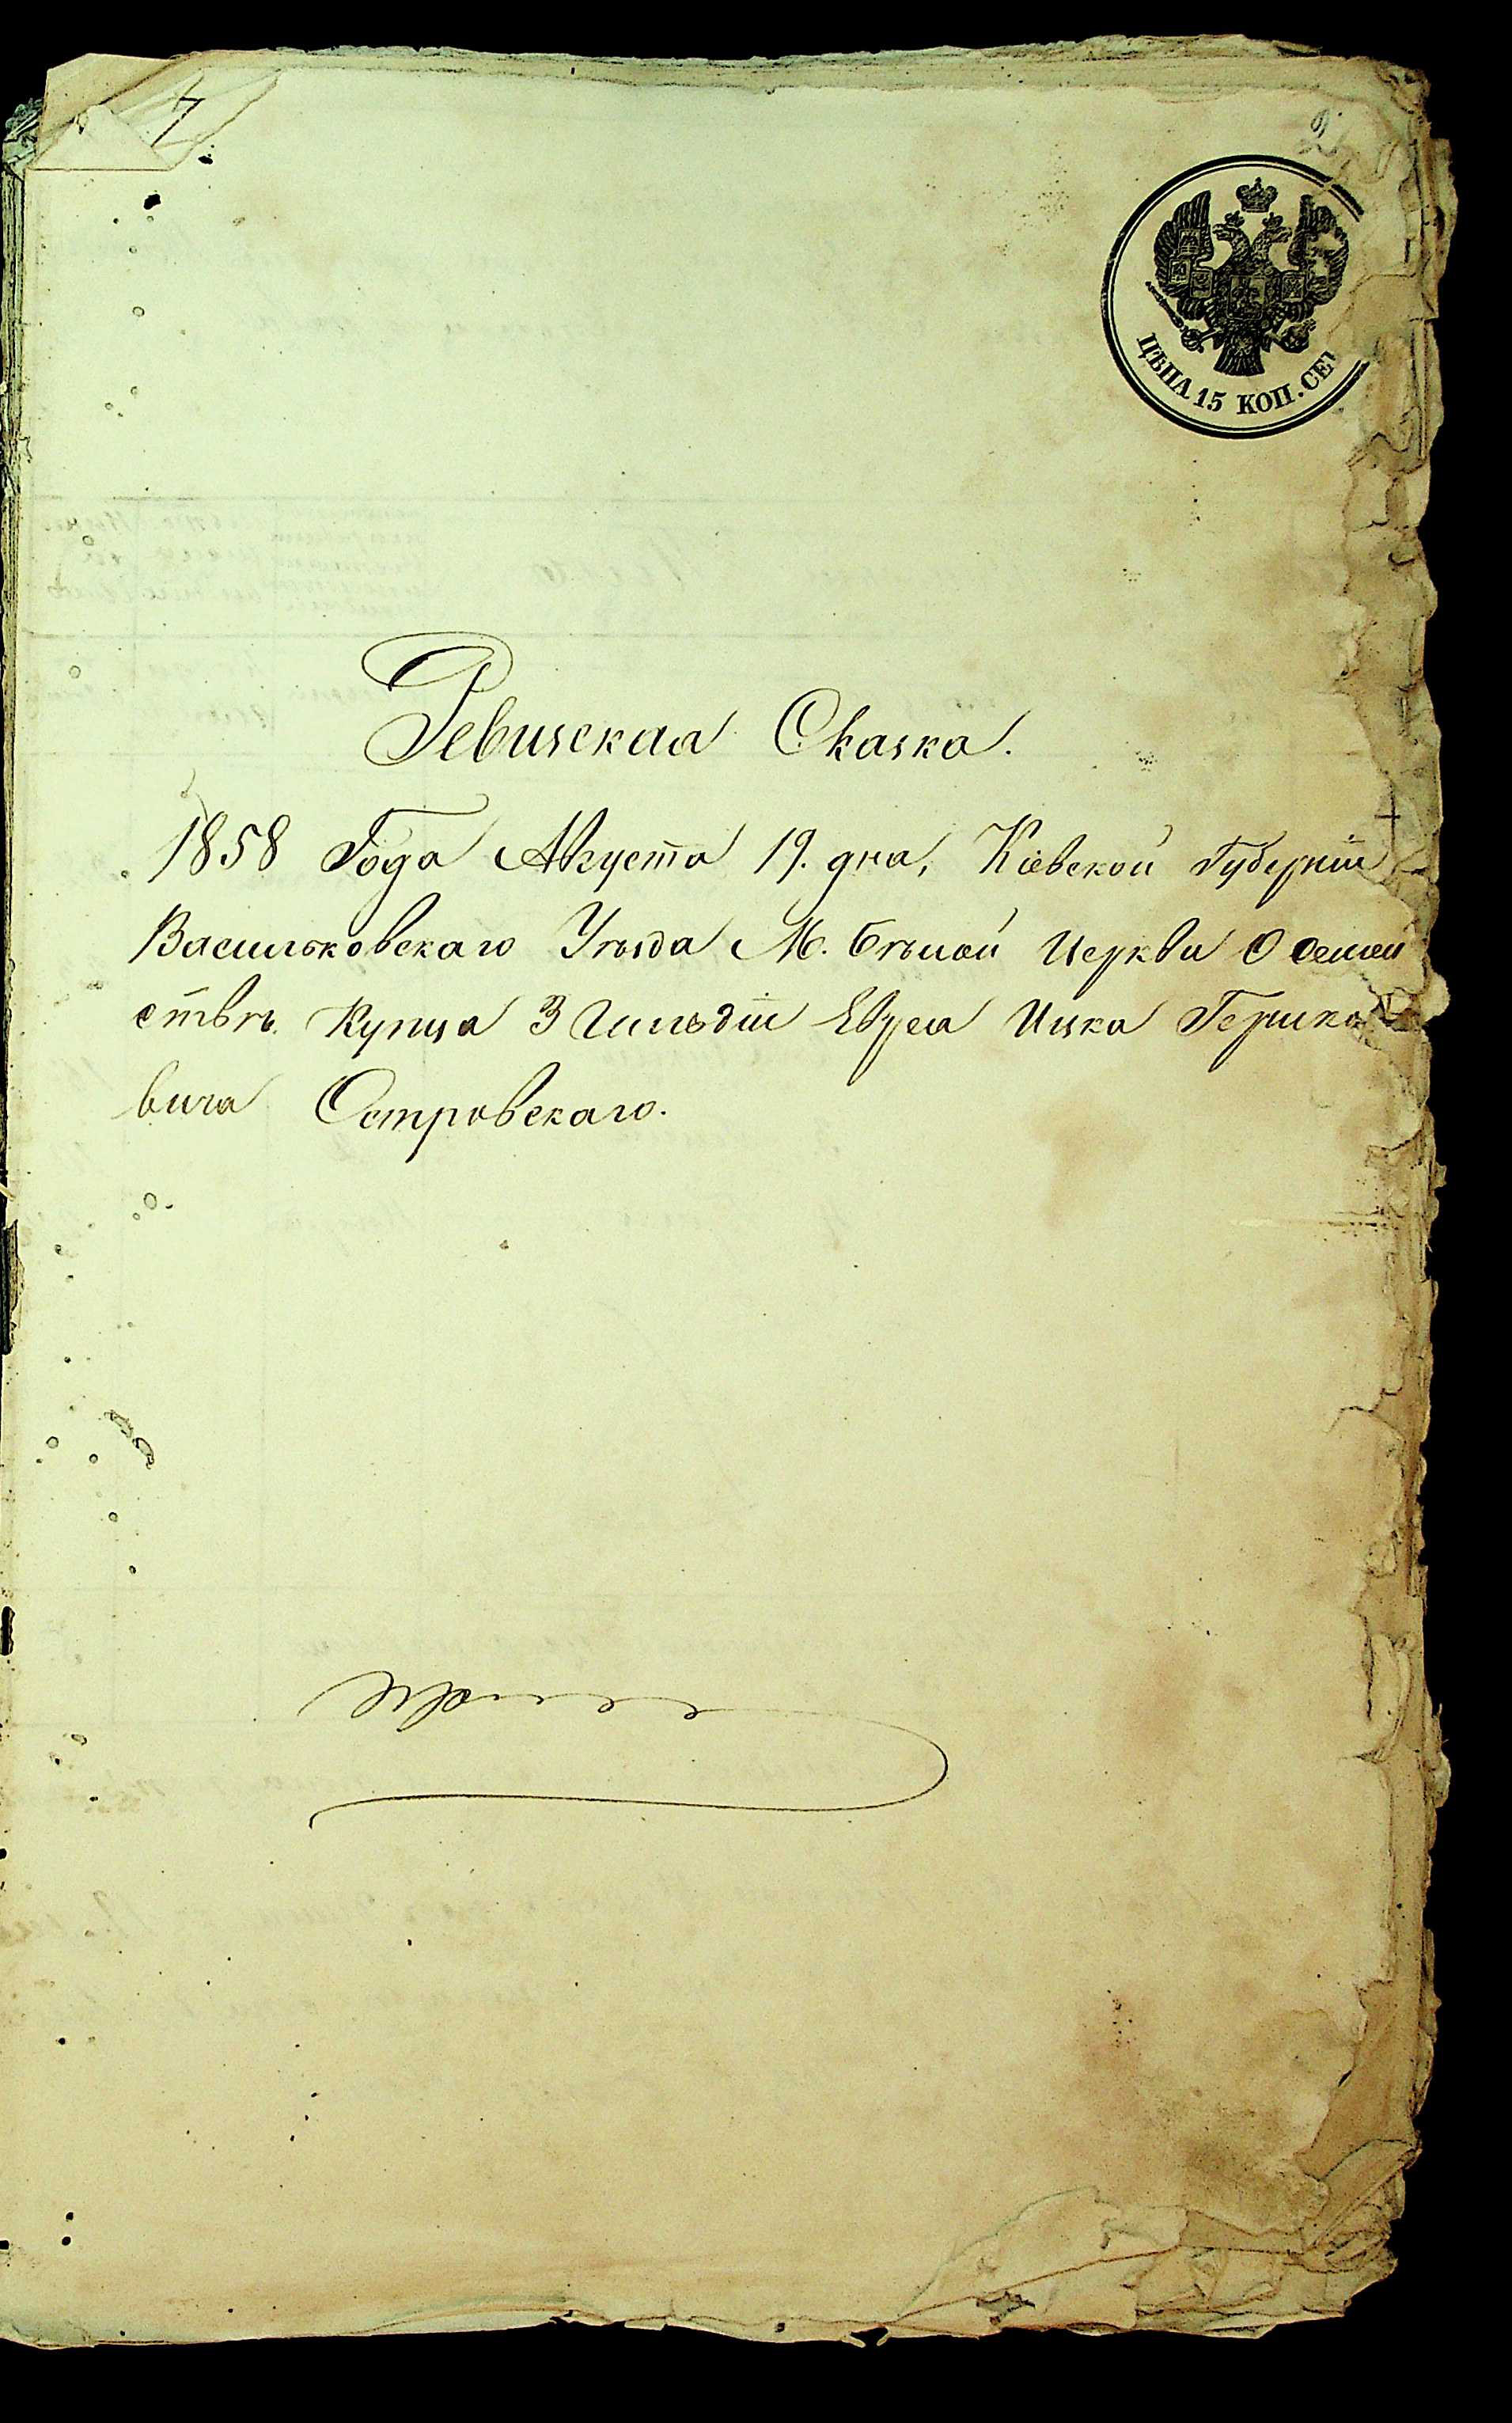 7
2
ЦѢНА 15 КОП. СЕР
Ревизская Сказка.
1858 Года Августа 19. дня, Кіевской Губерніи
Васильковскаго Уѣзда М. Бѣлой Церкви О семей
ствѣ. Купца 3 Гильдіи Еврея Ицка Гершко
вича Островскаго.